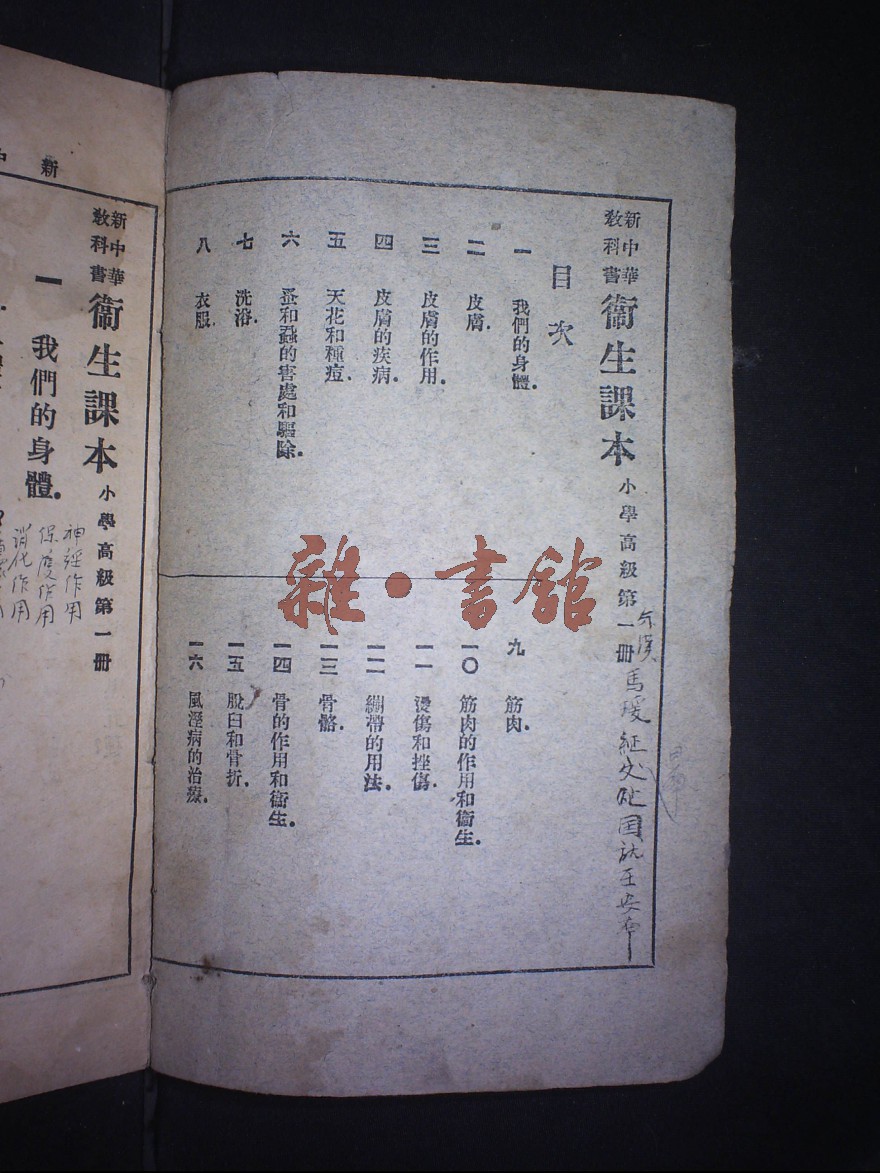 新中華
教科書
衞生課本 小學高級第一冊
目次
一 我們的身體.
二 皮膚.
三 皮膚的作用.
四 皮膚的疾病.
五 天花和種痘.
六 蚤和蝨的害處和驅除.
七 洗浴.
八 衣服.
九 筋肉.
一〇 筋肉的作用和衞生.
一一 燙傷和挫傷.
一二 繃帶的用法.
一三 骨骼.
一四 骨的作用和衞生.
一五 脫臼和骨折.
一六 風溼病的治療.
雜·書舘
新中
新中華
教科書
衞生課本 小學高級第一冊
一 我們的身體.
神經作用
保護作用
消化作用